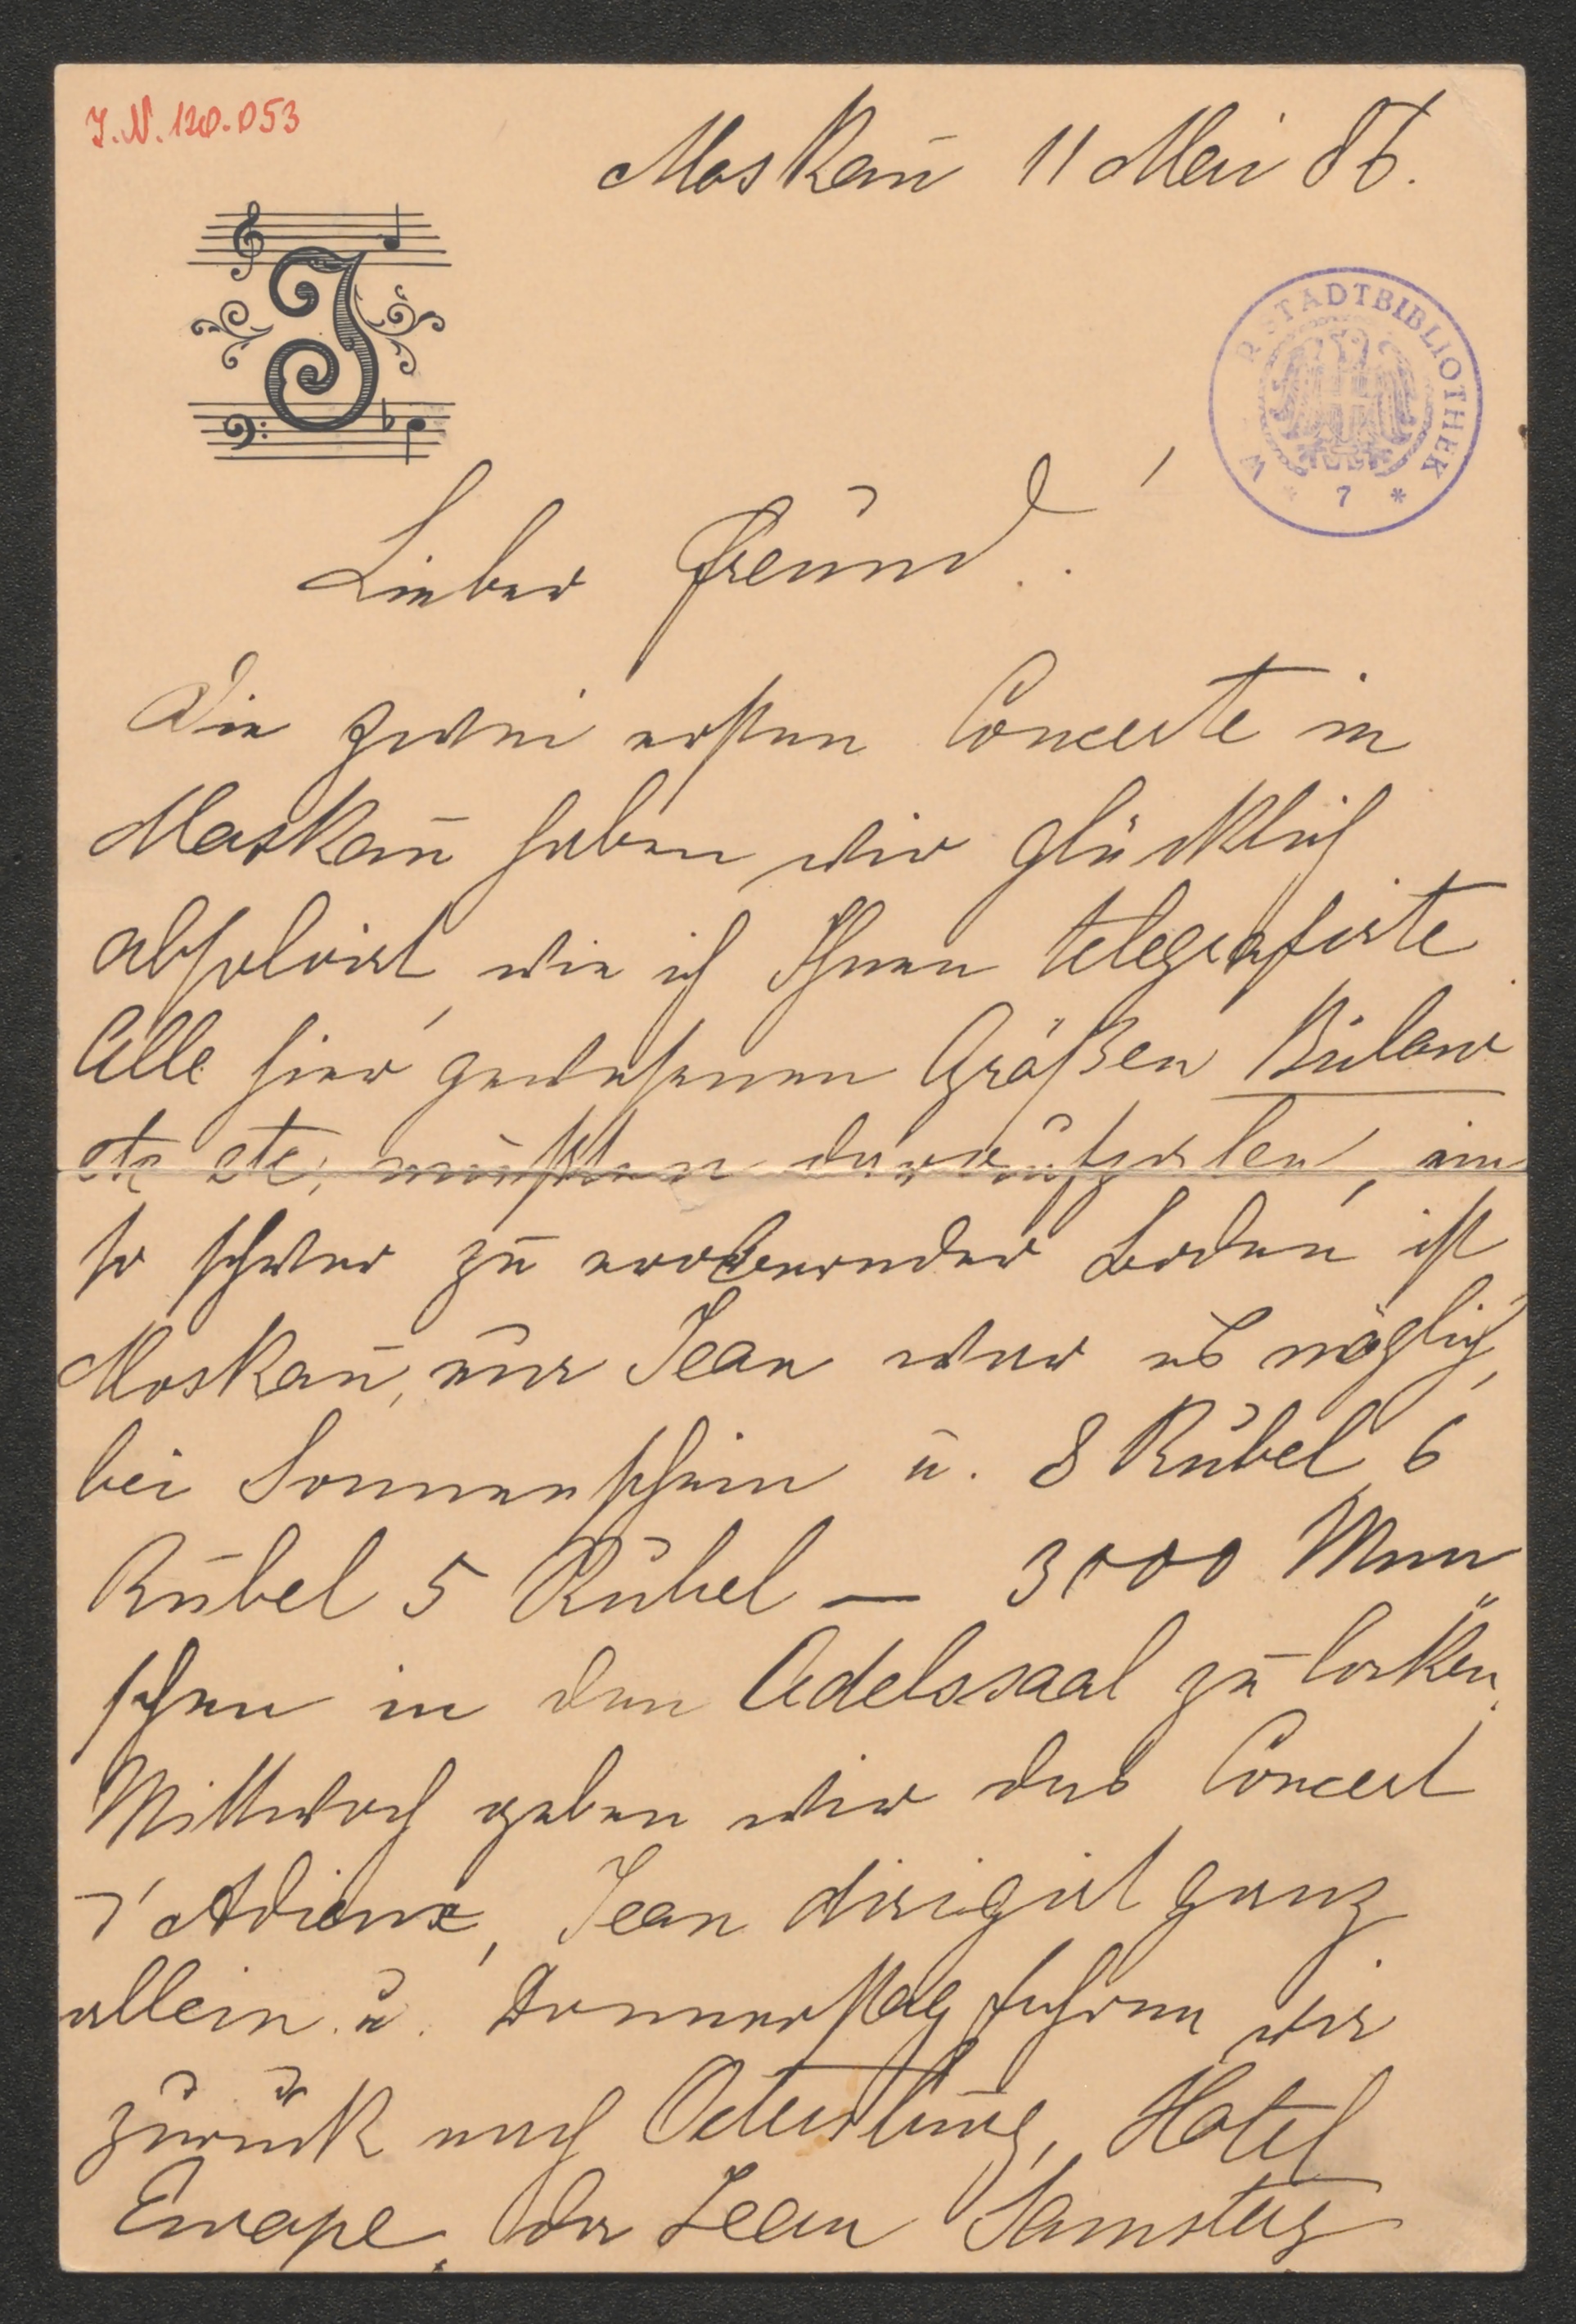 J.N. 120.053
Moskau 11 Mai 86.
J
WR STADTBIBLIOTHEK
* 7 *
Lieber Freund!
Die zwei ersten Concerte in
Moskau haben wir glücklich
absolvirt, wie ich Ihnen telegrafirte
Alle hier gewesenen Größen Bülow
etc etc, mußten darauf, ein
so schwer zu erobernder Boden ist
Moskau, nur Jean war es möglich,
bei Sonnenschein u. 8 Rubel 6
Rubel 5 Rubel — 3000 Men
schen in den Adelssaal zu locken.
Mittwoch geben wir das Concert
d'Adieux, Jean dirigirt ganz
allein u. Donnerstag fahren wir
zurück nach Petersburg, Hotel
Europe, da Jean Samstag